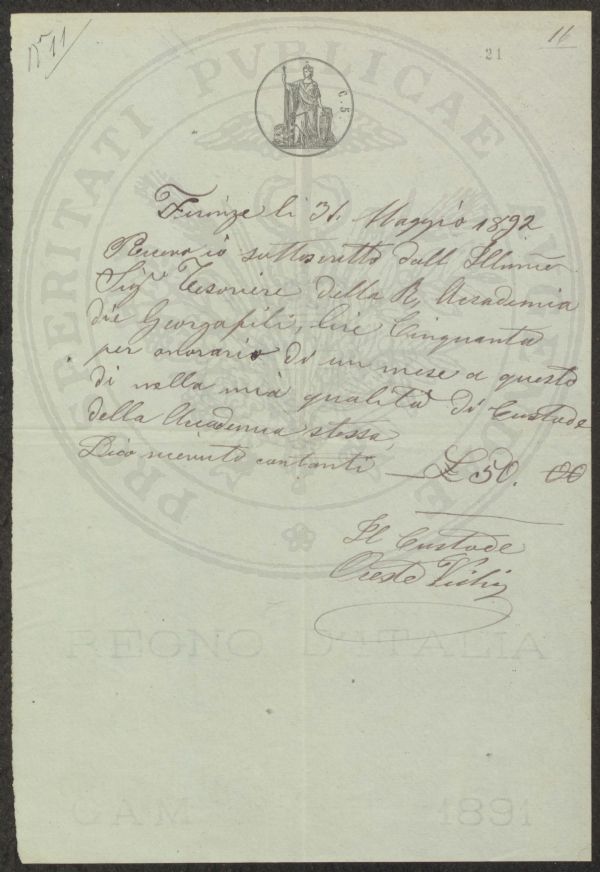 N° 11
16
21
C. 5.
PROSPERITATI PVBLICAE AVGENDAE
Firenze li 31. Maggio 1892
Ricevo io sottoscritto dall Illmo
Sigr Tesoriere della R. Accademia
dei Georgofili, lire Cinquanta
per onorario di un mese a questo
di nella mia qualità di Custode
della Accademia stessa
Dico ricevuto contanti £ 50. 00
Il Custode
Oreste
REGNO D'ITALIA
CAM 1891